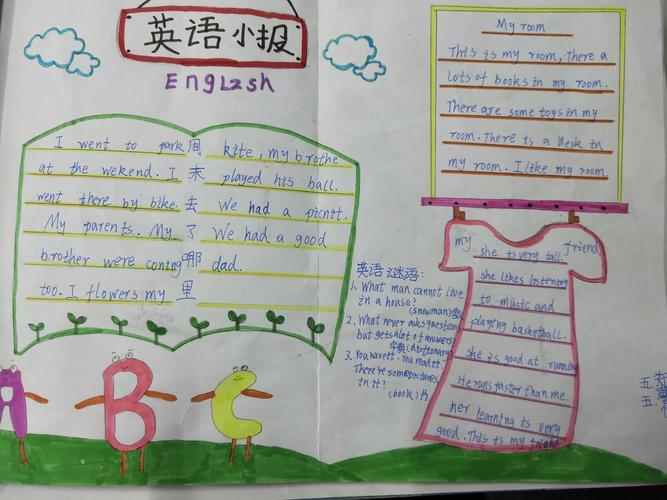 英语小报
English
I went to park
at the wekend. I
went there by bike.
My parents. My
brother were coning
too. I flowers my
周末去了哪里
kite, my brothe
played his ball.
We had a picnit.
We had a good
dad.
My room
This is my room, There a
lots of books in my room.
There are some toys in my
room. There is a desk in
my room. I like my room
my friend
she is very tall.
she likes listening
to music and
playing basketball.
she is good at running
He runs faster than me.
her learning is very
good. This is my friend
英语谜语:
1. What man cannot live
in a house?
(snowman)
2. What never asks question
but gets alot of answers?
字典(dictionary)
3. You have it. You read it.
There're some pictures
in it?
(book)书
A B C
五.
五.